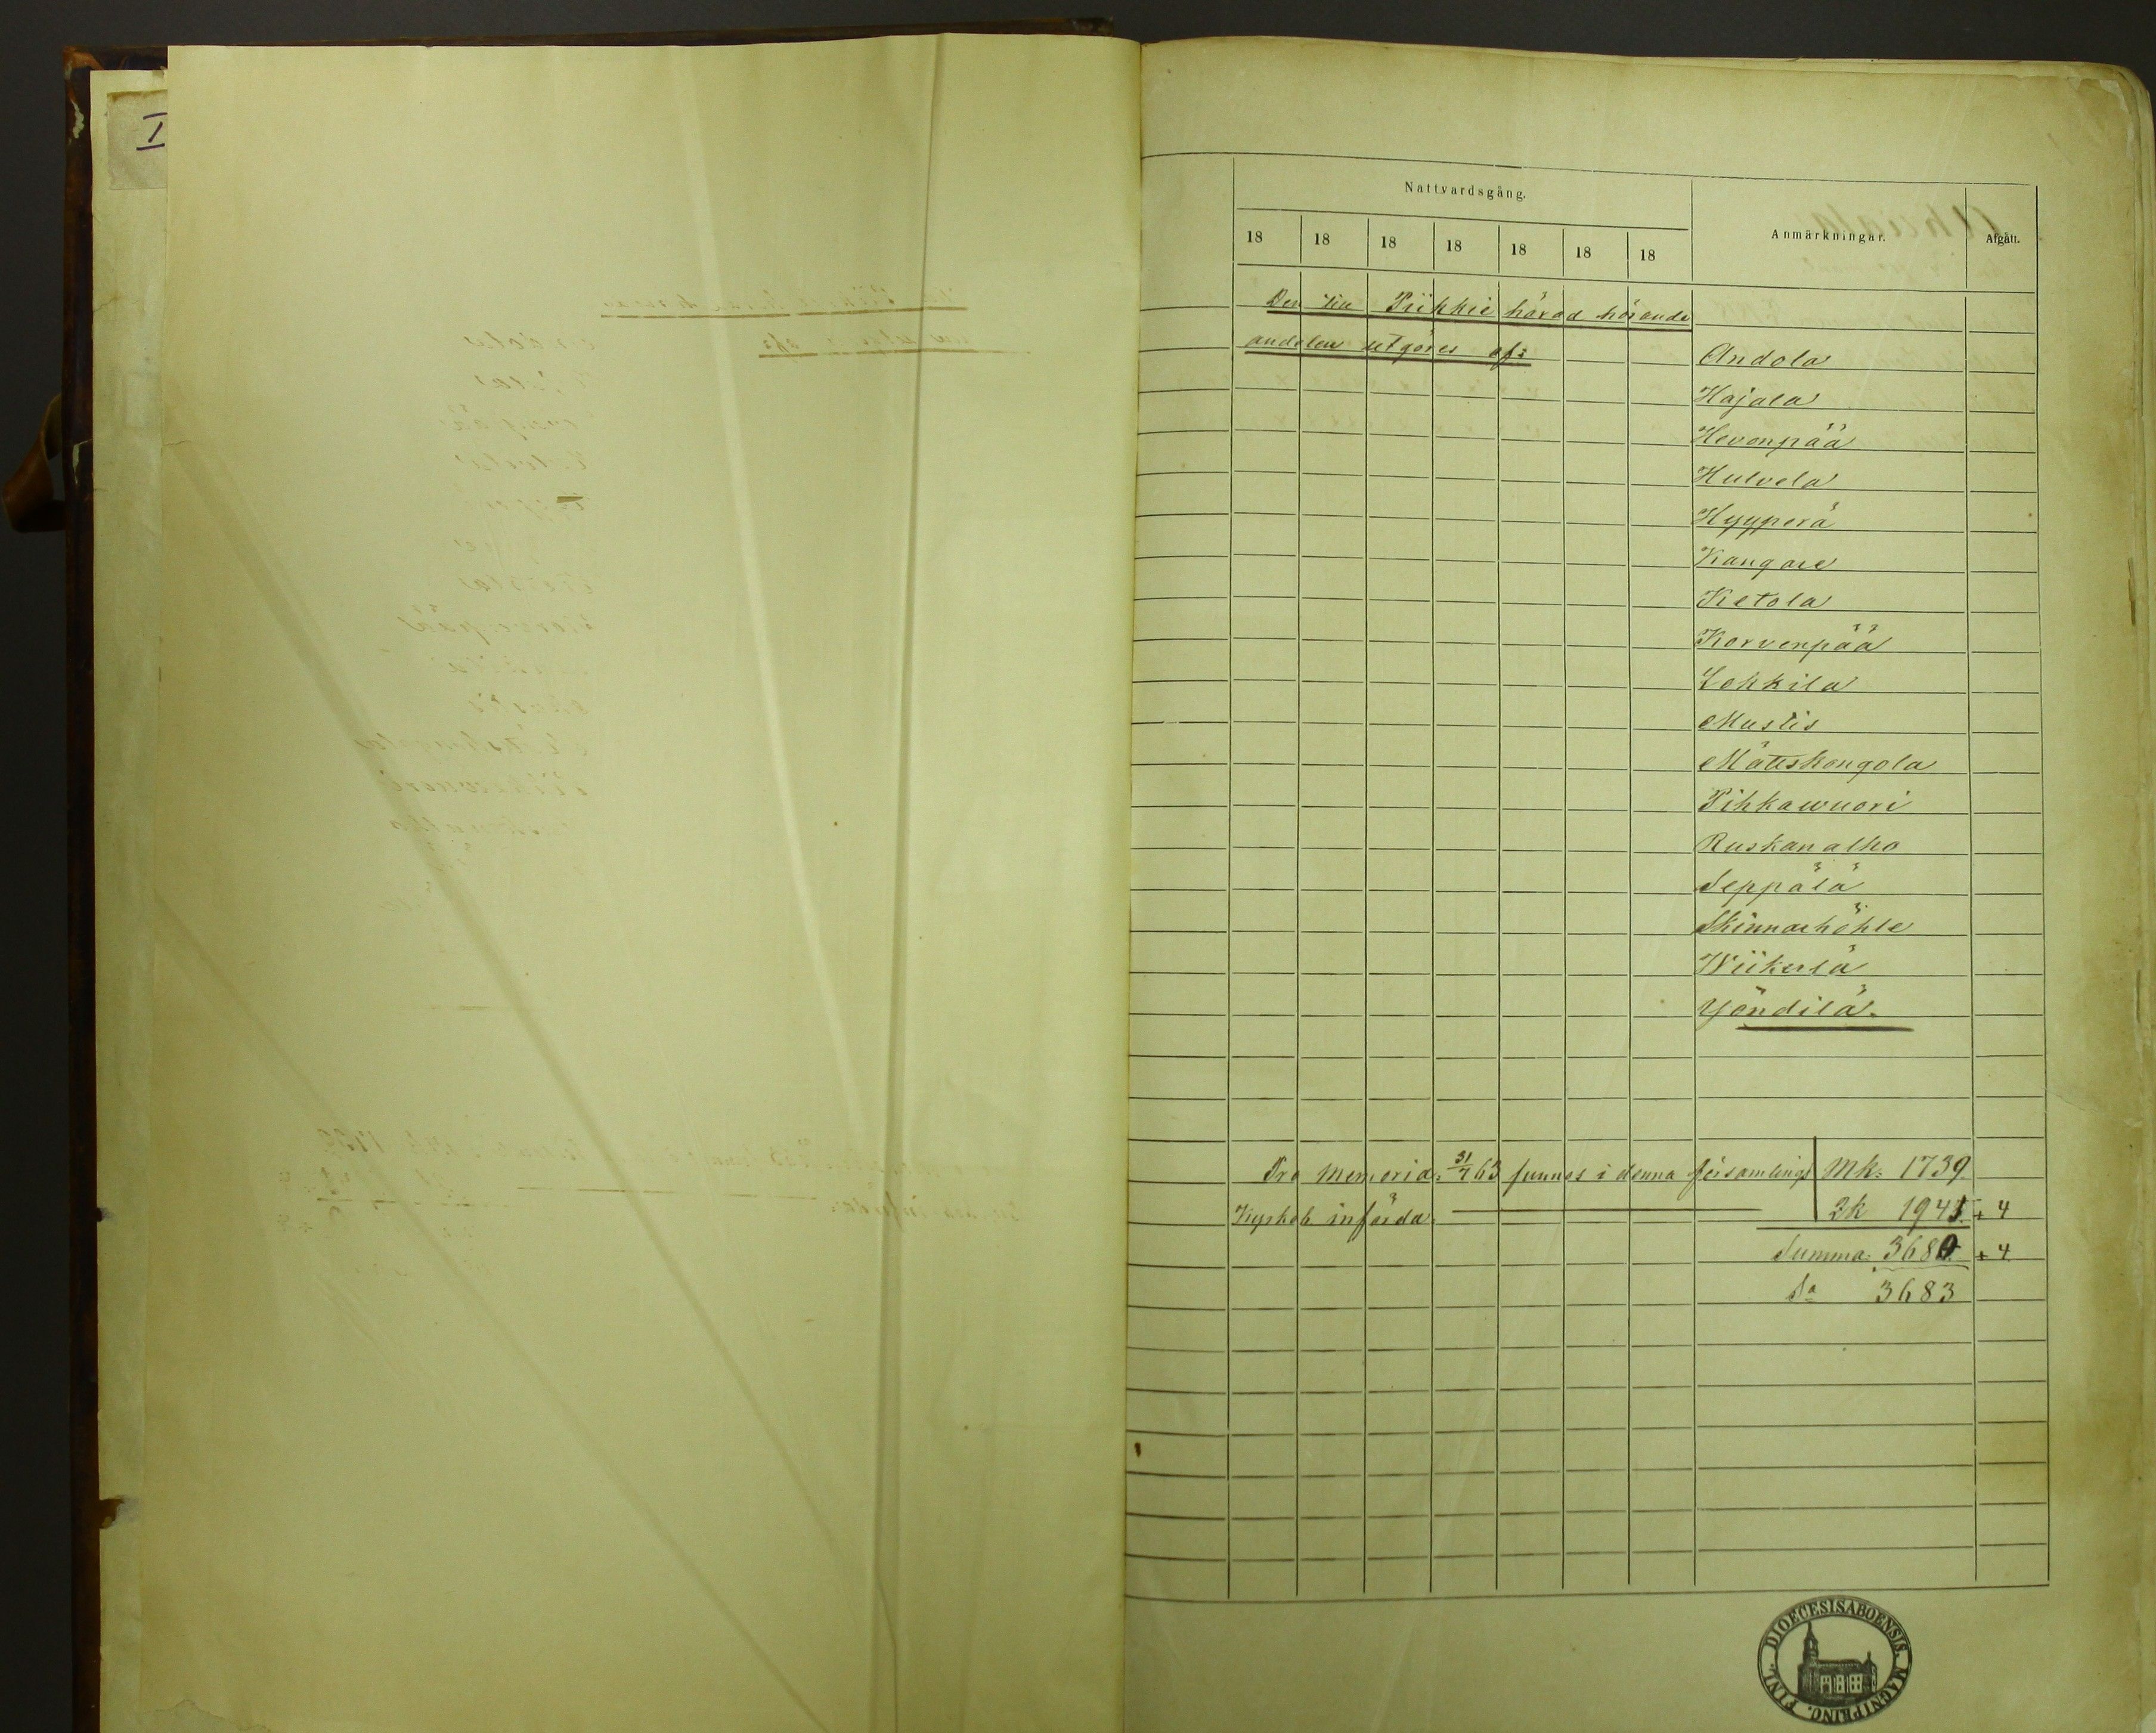 I
Nattvardsgång.
Anmärkningar.
Afgått.
18 18 18 18 18 18 18
Den till Piikkie härad hörande
andelen utgöres af:
Andola
Hajala
Hevonpää
Hulvela
Hyyperä
Kangare
Ketola
Korvenpää
Lohkila
Mustis
Mätiskongola
Pihkawuori
Ruskanalho
Seppälä
Skinnarhöhle
Wiikerlä
Yöndilä.
Pro Memoria: 31/7 63 funnos i denna församlings Mk: 1739.
Kyrkob införda. 2k 1941. + 4
Summa: 3680. + 4.
Sa 3683
FINL. DIOECESIS ABOENSIS. MAGNI PRINC.